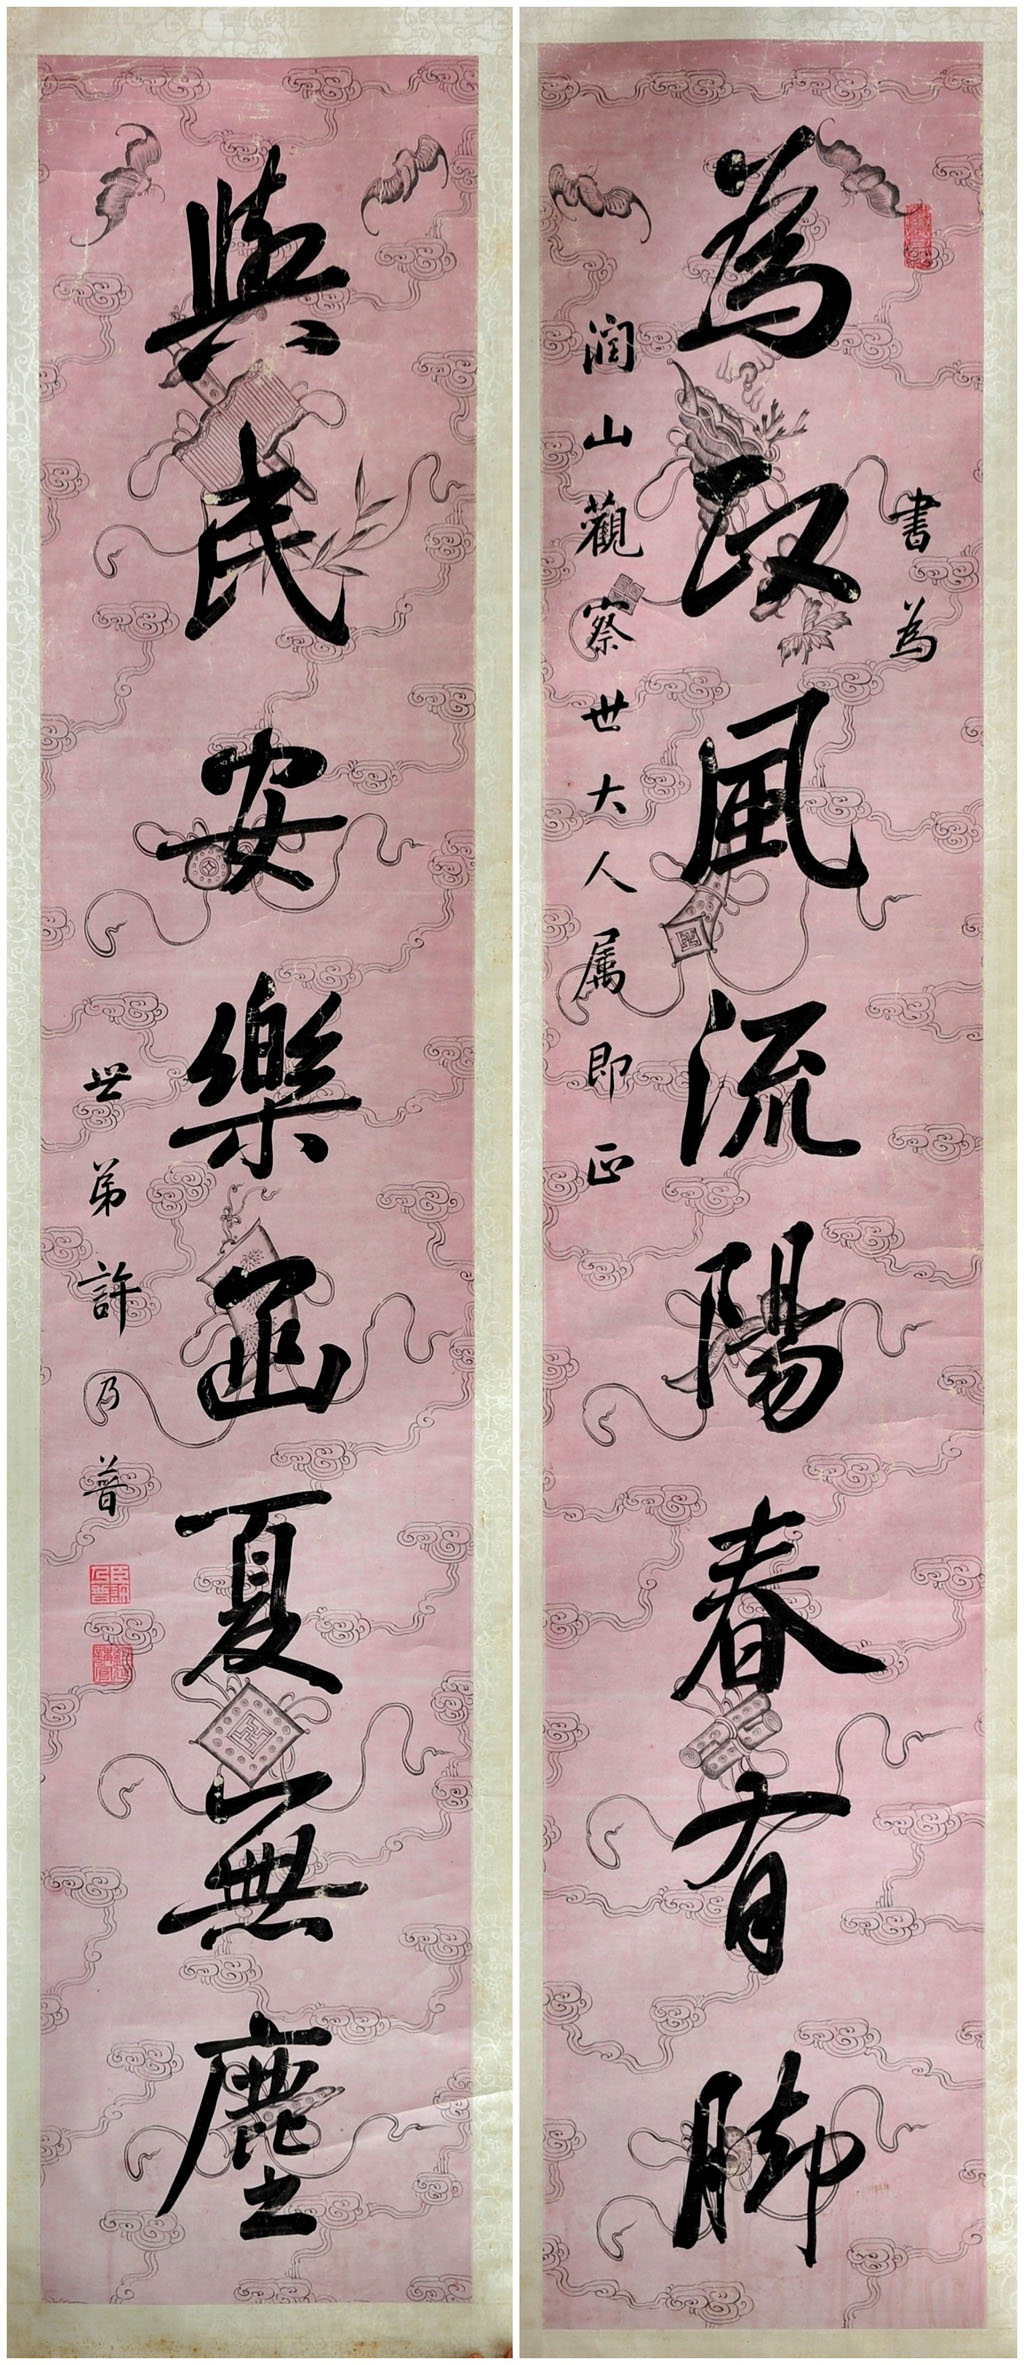 書為
為政風流陽春有脚
潤山觀察世大人属即正
與民安樂函夏無塵
世弟許乃普